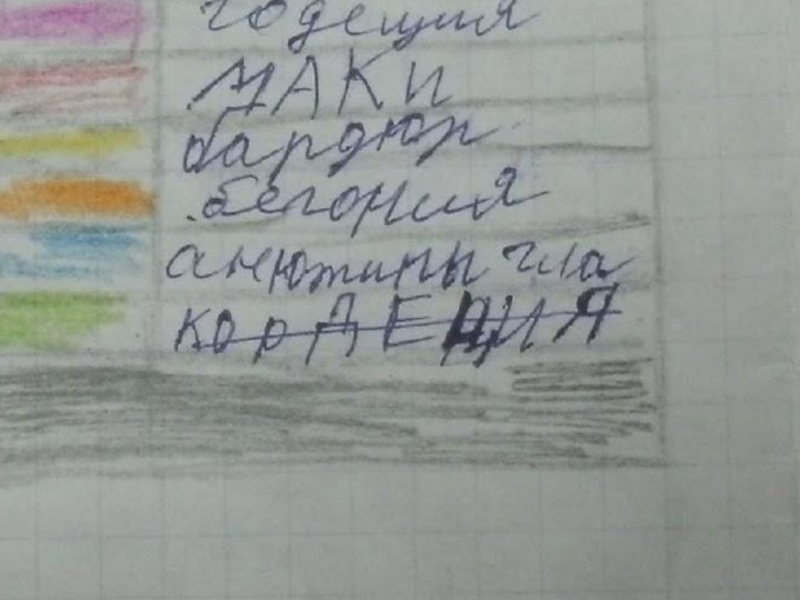 годеция
МАКИ
бардюр
бегония
анютины гла
корДЕЦИЯ